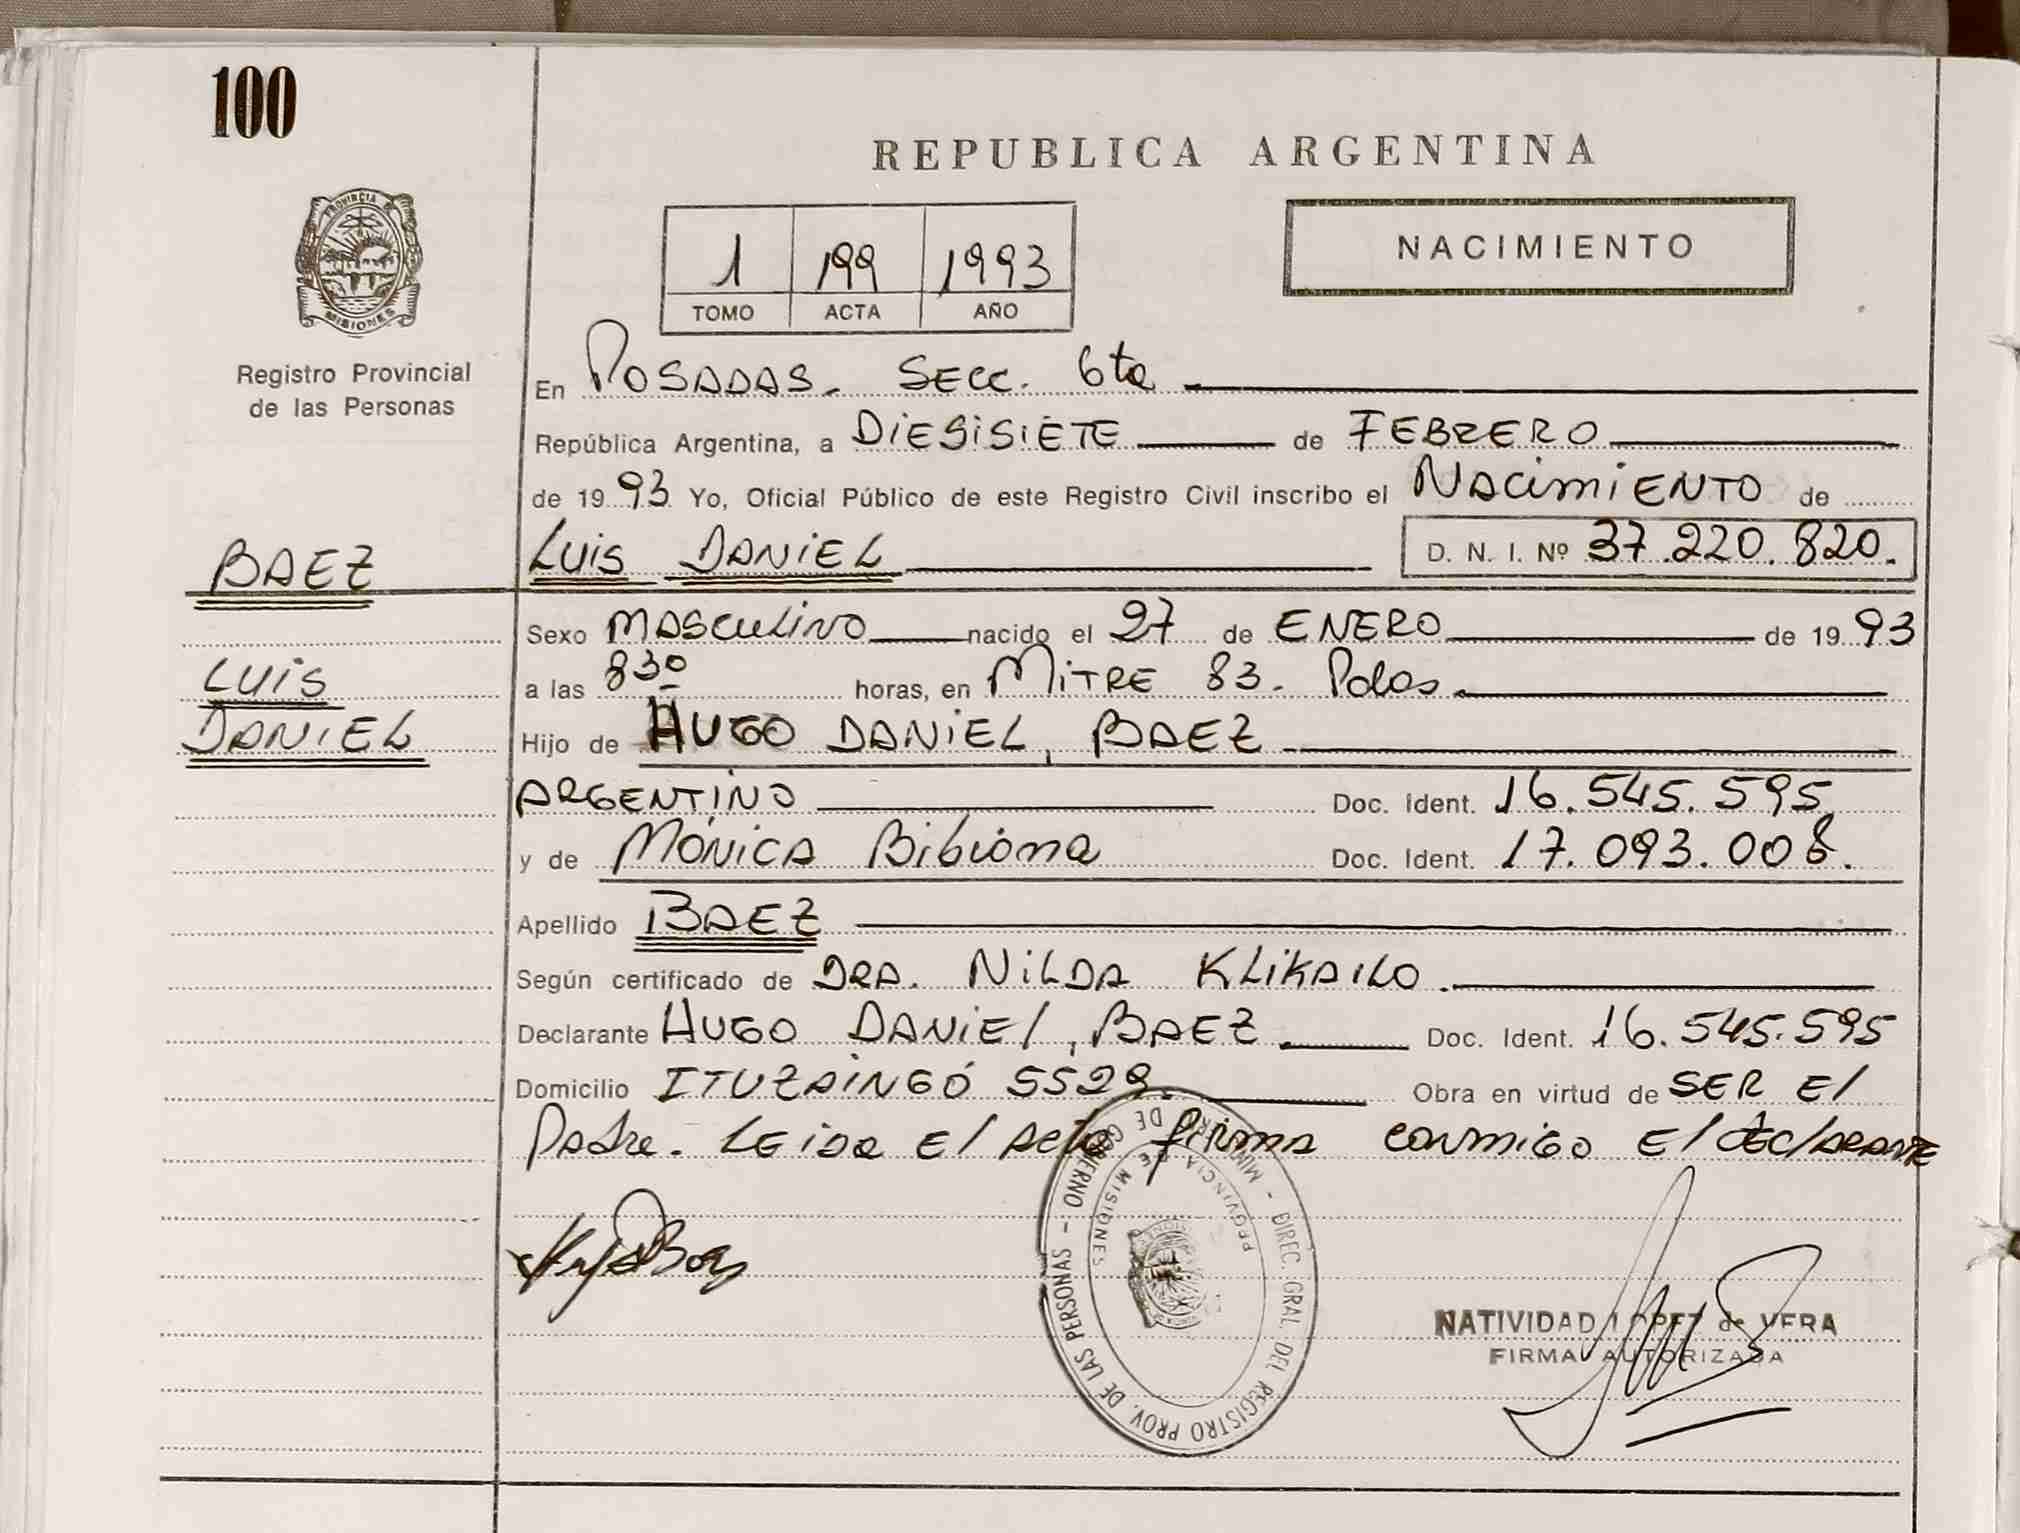 100
REPUBLICA ARGENTINA
PROVINCIA DE
MISIONES
1 199 1993
TOMO ACTA AÑO
NACIMIENTO
Registro Provincial
de las Personas
En POSADAS. SECC. 6ta
República Argentina, a DIESISIETE de FEBRERO
de 1993 Yo, Oficial Público de este Registro Civil inscribo el NACIMIENTO de
BAEZ
LUIS DANIEL D. N. I. Nº 37.220.820.
Sexo MASCULINO nacido el 27 de ENERO de 1993
LUIS
a las 830 horas, en MITRE 83. Pdas.
DANIEL
Hijo de HUGO DANIEL, BAEZ
ARGENTINO Doc. Ident. 16.545.595
y de MÓNICA Bibiana Doc. Ident. 17.093.008.
Apellido BAEZ
Según certificado de DRA. NILDA KLIKAILO.
Declarante HUGO DANIEL, BAEZ Doc. Ident. 16.545.595
Domicilio ITUZAINGÓ 5529. Obra en virtud de SER El
Padre. LEIDA El Acta firma conmigo El dEClARANTE
MINISTERIO DE GOBIERNO - DIREC. GRAL. DEL REGISTRO PROV. DE LAS PERSONAS -
PROVINCIA DE MISIONES
NATIVIDAD LOPEZ de VERA
FIRMA AUTORIZADA